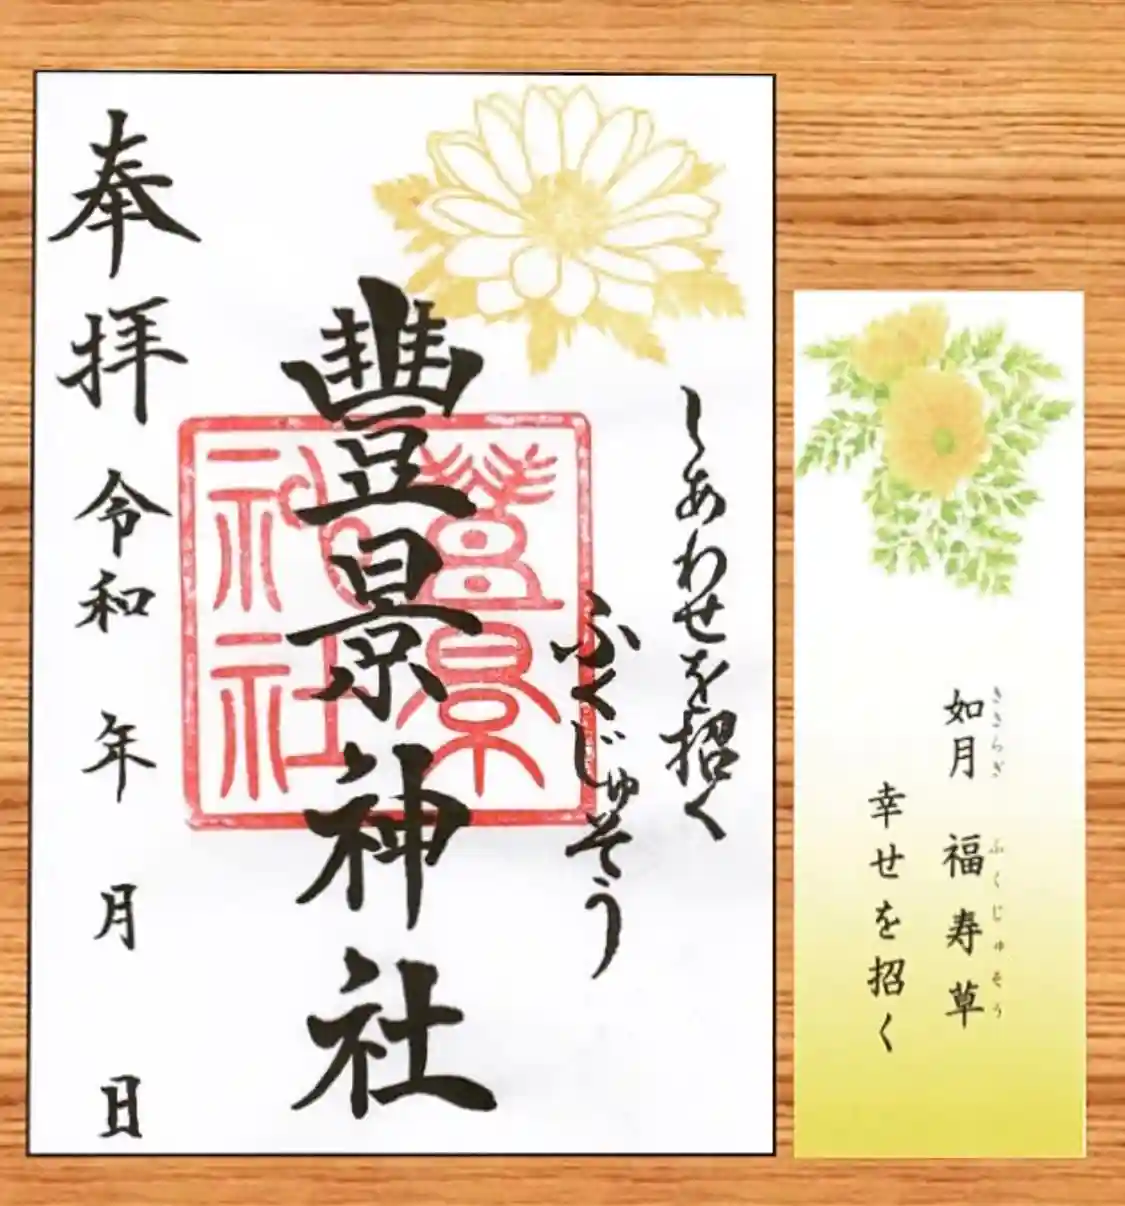 しあわせを招く
ふくじゅそう
豊景神社
豊景神社
奉拝 令和 年 月 日
如月 福寿草
きさらぎ ふくじゅそう
幸せを招く